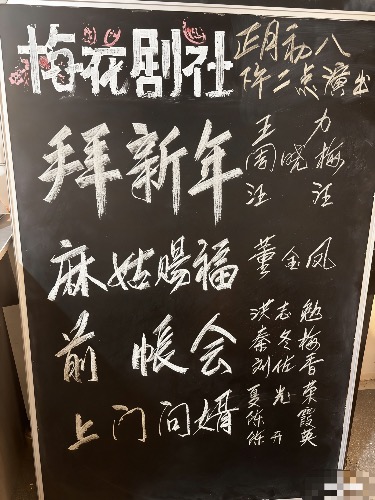 梅花剧社
正月初八
下午二点演出
拜新年
王力
周晓梅
汪汪
麻姑赐福
董金凤
前帐会
洪志勉
秦冬梅
刘佐香
上门问婿
夏光荣
陈霞
陈开英